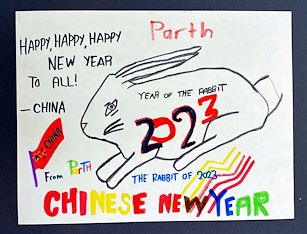 Parth
HAPPY, HAPPY, HAPPY
NEW YEAR
TO ALL!
- CHINA
YEAR OF THE RABBIT
2023
CHINA
From PARTH
THE RABBIT OF 2023
CHINESE NEW YEAR